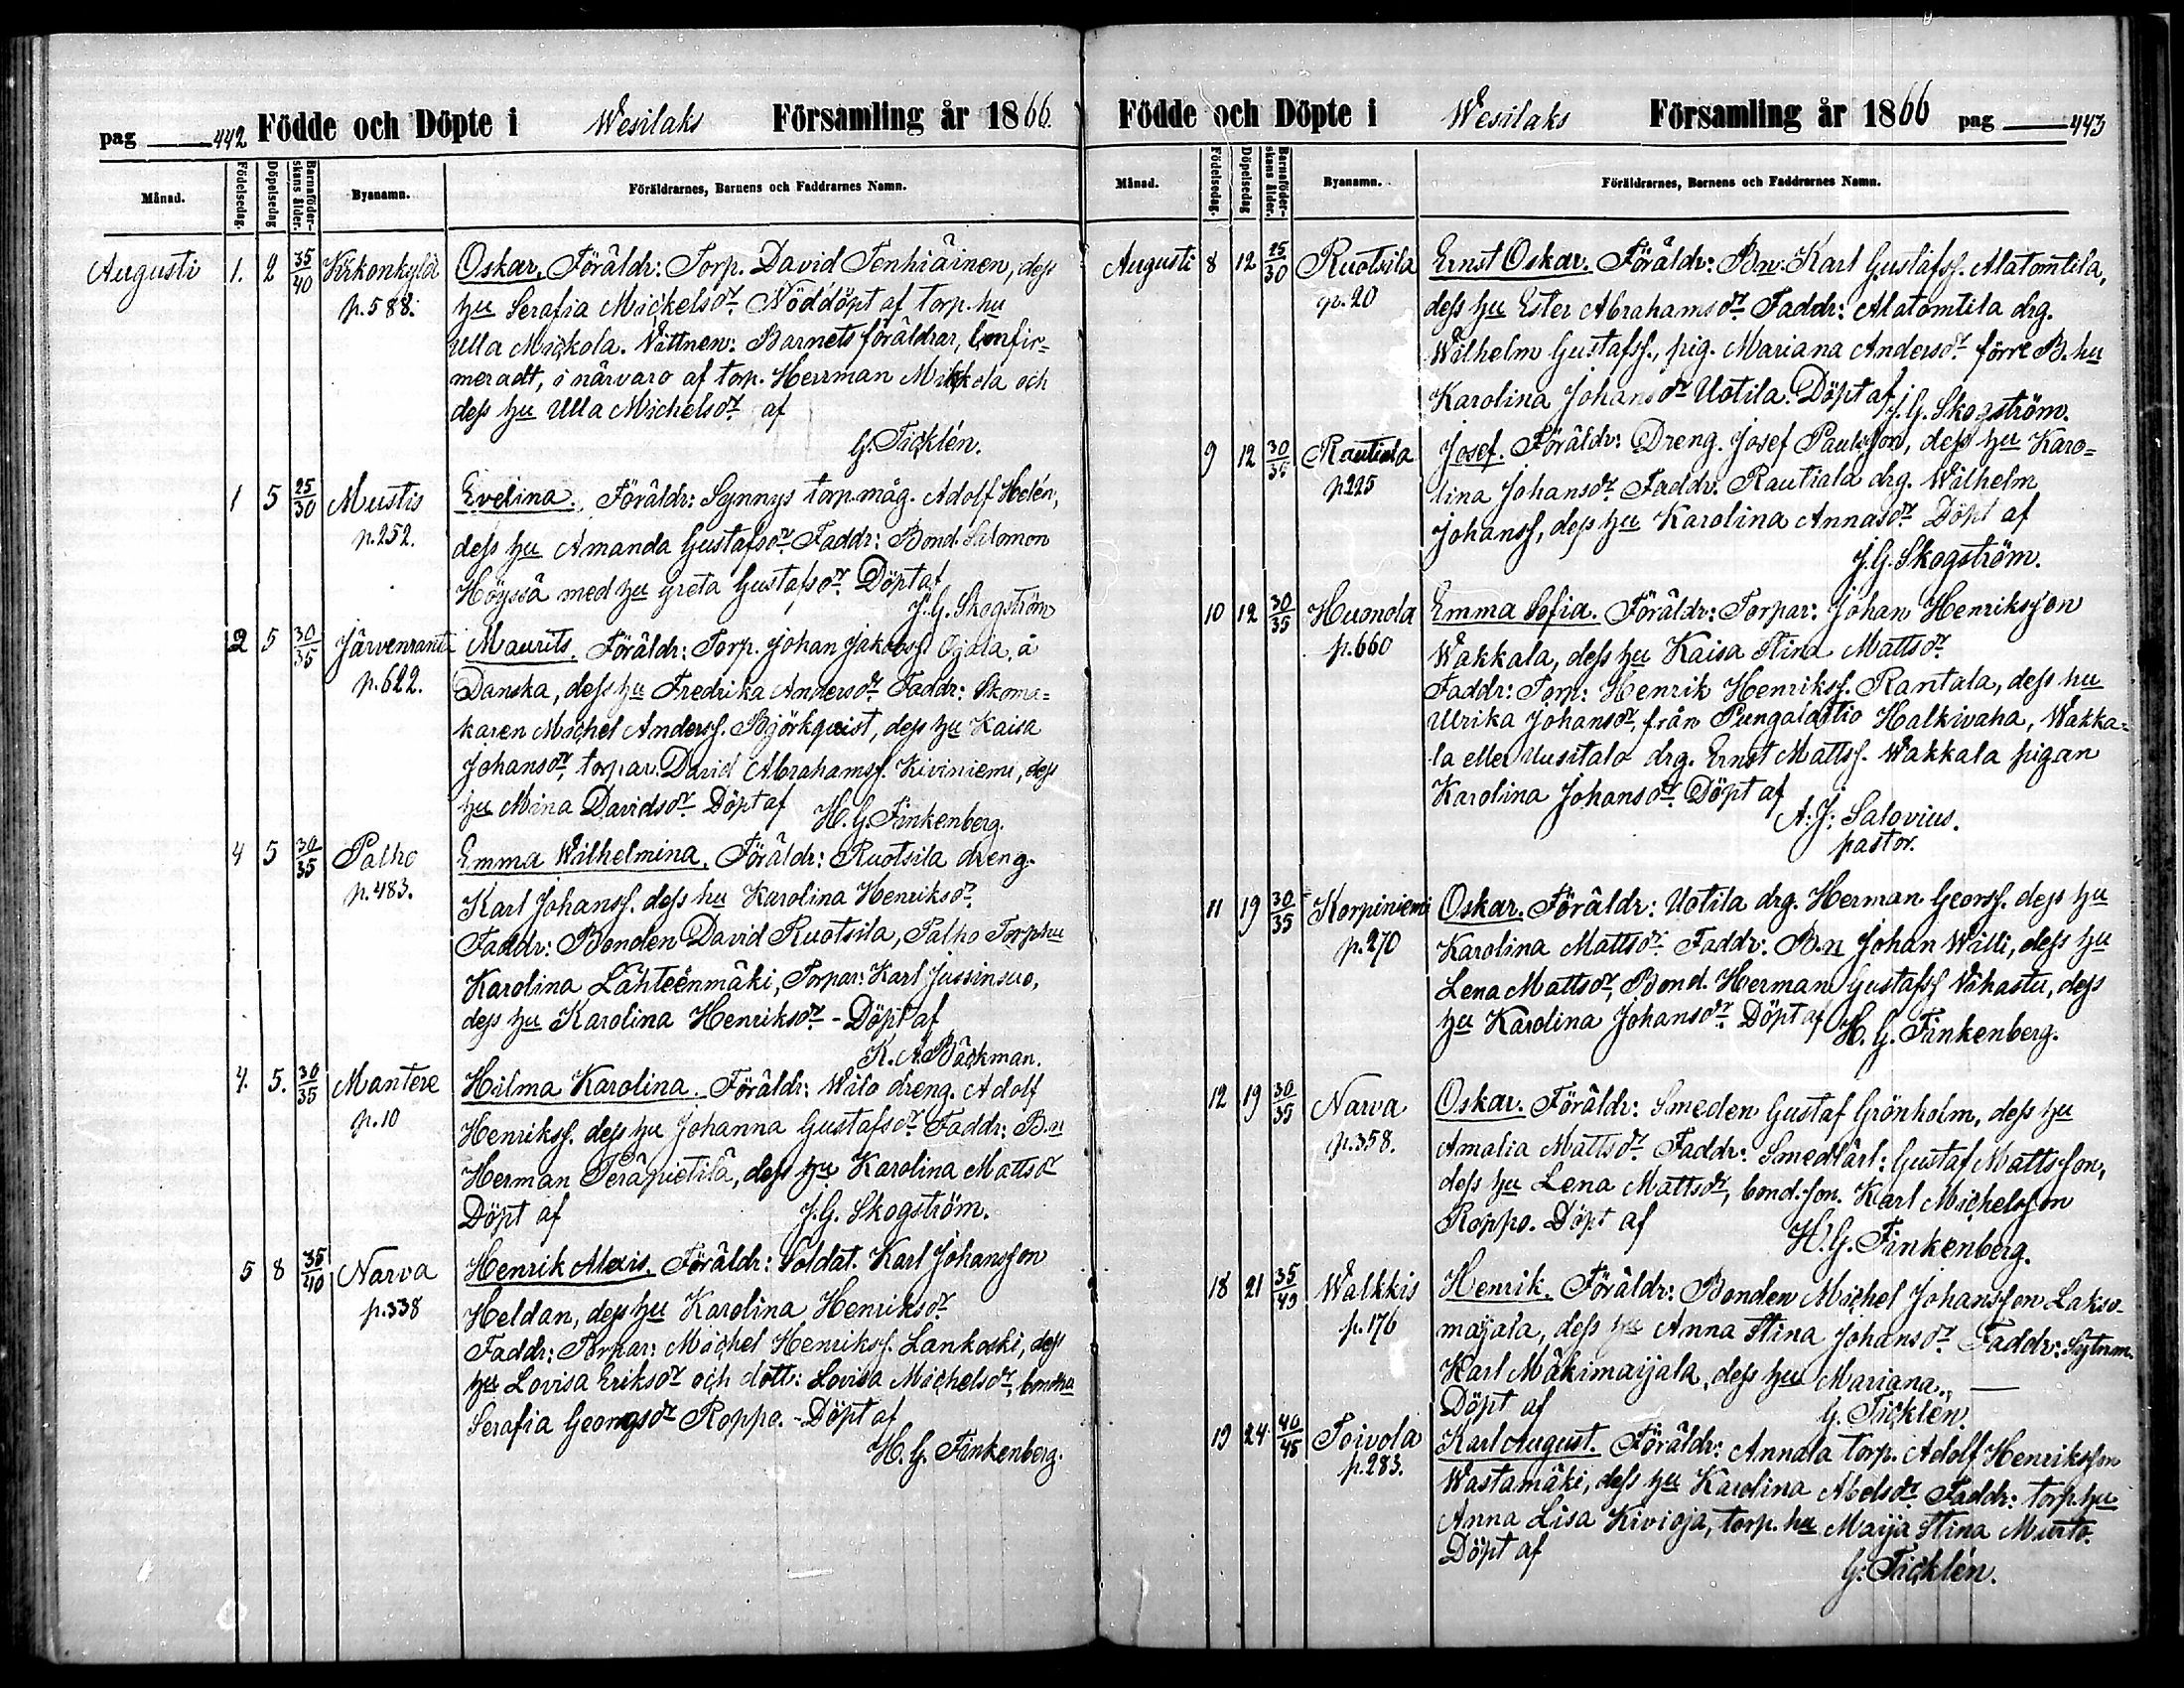 pag 442 Födde och Döpte i Wesilaks Församling år 1866.
Månad. Födelsedag. Döpelsedag Barnaföder-skans ålder. Byanamn. Föräldrarnes, Barnens och Faddrarnes Namn.
Augusti 1. 2 35/40 Kirkonkylä Oskar. Föräldr: Torp. David Tenhiäinen, dess
p. 588. hu Serafia Mickelsdr. Nöddöpt af torp. hu
Ulla Mickola. Vittnen: Barnets föräldrar, Confir=
meradt, i närvaro af torp. Herrman Mikkola och
dess hu Ulla Michelsdr. af
G. Ticklén.
1 5 25/30 Mustis Evelina. Föräldr: Synnys torp.måg. Adolf Helén,
p. 252. dess hu Amanda Gustafsdr. Faddr: Bond. Salomon
Höyssä med hu Greta Gustafsdr. Döpt af
J. G. Skogström
2 5 30/35 Järvenranta Maurits. Föräldr: Torp. Johan Jakobss. Ojala, å
p. 622. Danska, dess hu Fredrika Andersdr. Faddr: Skoma=
karen Michel Anderss. Björkqvist, dess hu Kaisa
Johansdr, torpar. David Abrahamss. Kiviniemi, dess
hu Mina Davidsdr. Döpt af H. G. Finkenberg.
4 5 30/35 Palho Emma Wilhelmina. Föräldr: Ruotsila dreng.
p. 483. Karl Johanss. dess hu Karolina Henriksdr.
Faddr: Bonden David Ruotsila, Palho Torp.hu
Karolina Lähteenmäki, Torpar: Karl Jussinsuo,
dess hu Karolina Henriksdr. - Döpt af
K. A. Bäckman.
4. 5. 30/35 Mantere Hilma Karolina. Föräldr: Wilo dreng. Adolf
p. 10 Henrikss. dess hu Johanna Gustafsdr. Faddr: B.n
Herman Peräpietilä, dess hu Karolina Mattsdr
Döpt af J. G. Skogström.
5 8 35/40 Narva Henrik Alexis. Föräldr: Soldat. Karl Johansson
p. 338 Heldan, dess hu Karolina Henriksdr.
Faddr: Torpar: Michel Henrikss. Lankoski, dess
hu Lovisa Eriksdr och dott: Lovisa Michelsdr, bondhu
Serafia Georgsdr Roppo. - Döpt af
H. G. Finkenberg.
Födde och Döpte i Wesilaks Församling år 1866 pag 443
Månad. Födelsedag. Döpelsedag Barnaföder-skans ålder. Byanamn. Föräldrarnes, Barnens och Faddrarnes Namn.
Augusti 8 12 25/30 Ruotsila Ernst Oskar. Föräldr: Bn. Karl Gustafss. Alatomtila,
p. 20 dess hu Ester Abrahamsdr. Faddr: Alatomtila drg.
Wilhelm Gustafss., pig. Mariana Andersdr. förre B. hu
Karolina Johansdr Uotila. Döpt af J. G. Skogström.
9 12 30/35 Rautiala Josef. Föräldr: Dreng. Josef Paulsson, dess hu Karo=
p 225 lina Johansdr. Faddr: Rautiala drg. Wilhelm
Johanss, dess hu Karolina Annasdr. Döpt af
J. G. Skogström.
10 12 30/35 Huonola Emma Sofia. Föräldr: Torpar: Johan Henriksson
p. 660 Wakkala, dess hu Kaisa Stina Mattsdr.
Faddr: Torp: Henrik Henrikss. Rantala, dess hu
Ulrika Johansdr, från Pungalaitio Halkivaha, Wakka=
la eller Uusitalo drg. Ernst Mattss. Wakkala pigan
Karolina Johansdr. Döpt af
A: J: Salovius.
pastor.
11 19 30/35 Korpiniemi Oskar. Föräldr: Uotila drg. Herman Georss. dess hu
p. 270 Karolina Mattsdr. Faddr: B.n Johan Willi, dess hu
Lena Mattsdr, Bond. Herman Gustafss Vihastu, dess
hu Karolina Johansdr. Döpt af H. G. Finkenberg.
12 19 30/35 Narva Oskar. Föräldr: Smeden Gustaf Grönholm, dess hu
p. 358. Amalia Mattsdr. Faddr: Smedlärl: Gustaf Mattsson,
dess hu Lena Mattsdr, bond.son. Karl Michelsson
Roppo. Döpt af H. G. Finkenberg.
18 21 35/40 Walkkis Henrik. Föräldr: Bonden Michel Johansson Lakso-
p. 176 maijala, dess hu Anna Stina Johansdr. Faddr: Sytnm.
Karl Mäkimaijala, dess hu Mariana.
Döpt af G. Ticklén.
19 24 40/45 Toivola Karl August. Föräldr: Annala torp. Adolf Henriksson
p. 283. Wastamäki, dess hu Karolina Abelsdr. Faddr: torp.hu
Anna Lisa Kivioja, torp. hu Maija Stina Murto.
Döpt af
G. Ticklén.